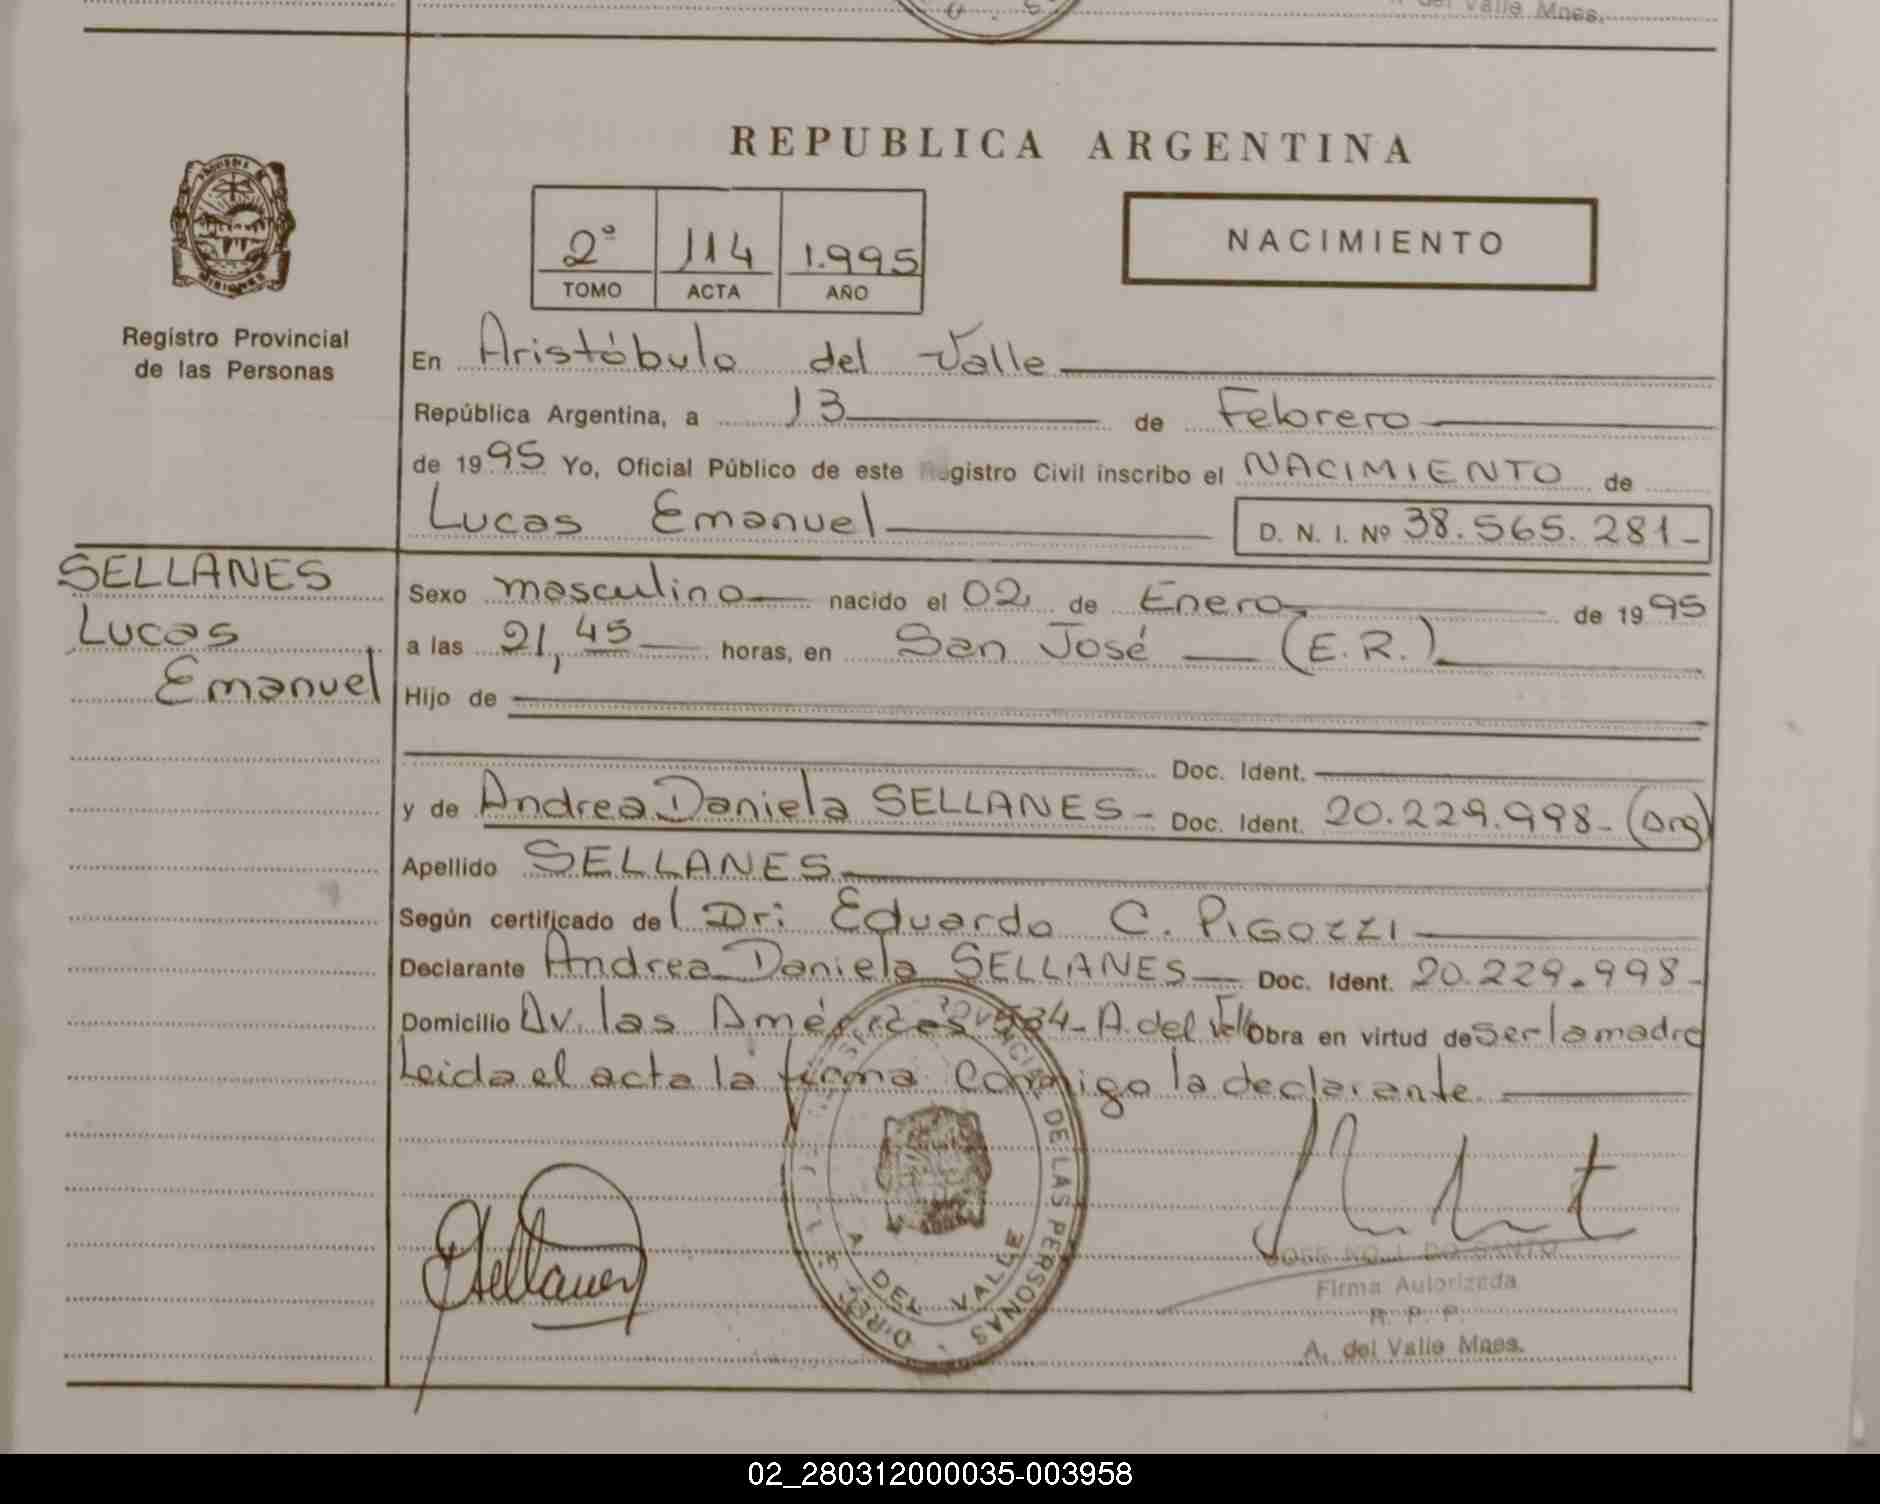 del Valle Mnes.
REPUBLICA ARGENTINA
2º 114 1.995
TOMO ACTA AÑO
NACIMIENTO
Registro Provincial
de las Personas
En Aristóbulo del Valle
República Argentina, a 13 de Febrero
de 1995 Yo, Oficial Público de este Registro Civil inscribo el NACIMIENTO de
Lucas Emanuel D. N. I. Nº 38.565.281-
SELLANES
Lucas
Emanuel
Sexo masculino nacido el 02 de Enero de 1995
a las 21,45 horas, en San José (E.R.)
Hijo de
Doc. Ident.
y de Andrea Daniela SELLANES- Doc. Ident. 20.229.998- (Arg)
Apellido SELLANES
Según certificado del Dr: Eduardo C. PIGOZZI
Declarante Andrea Daniela SELLANES Doc. Ident. 20.229.998-
Domicilio Av. las Américas 534- A. del Valle Obra en virtud de ser la madre
Leida el acta la firma conmigo la declarante
DE LAS PERSONAS
A. DEL VALLE
DO SANTO
Firma Autorizada
R. P. P.
A. del Valle Mnes.
02_280312000035-003958